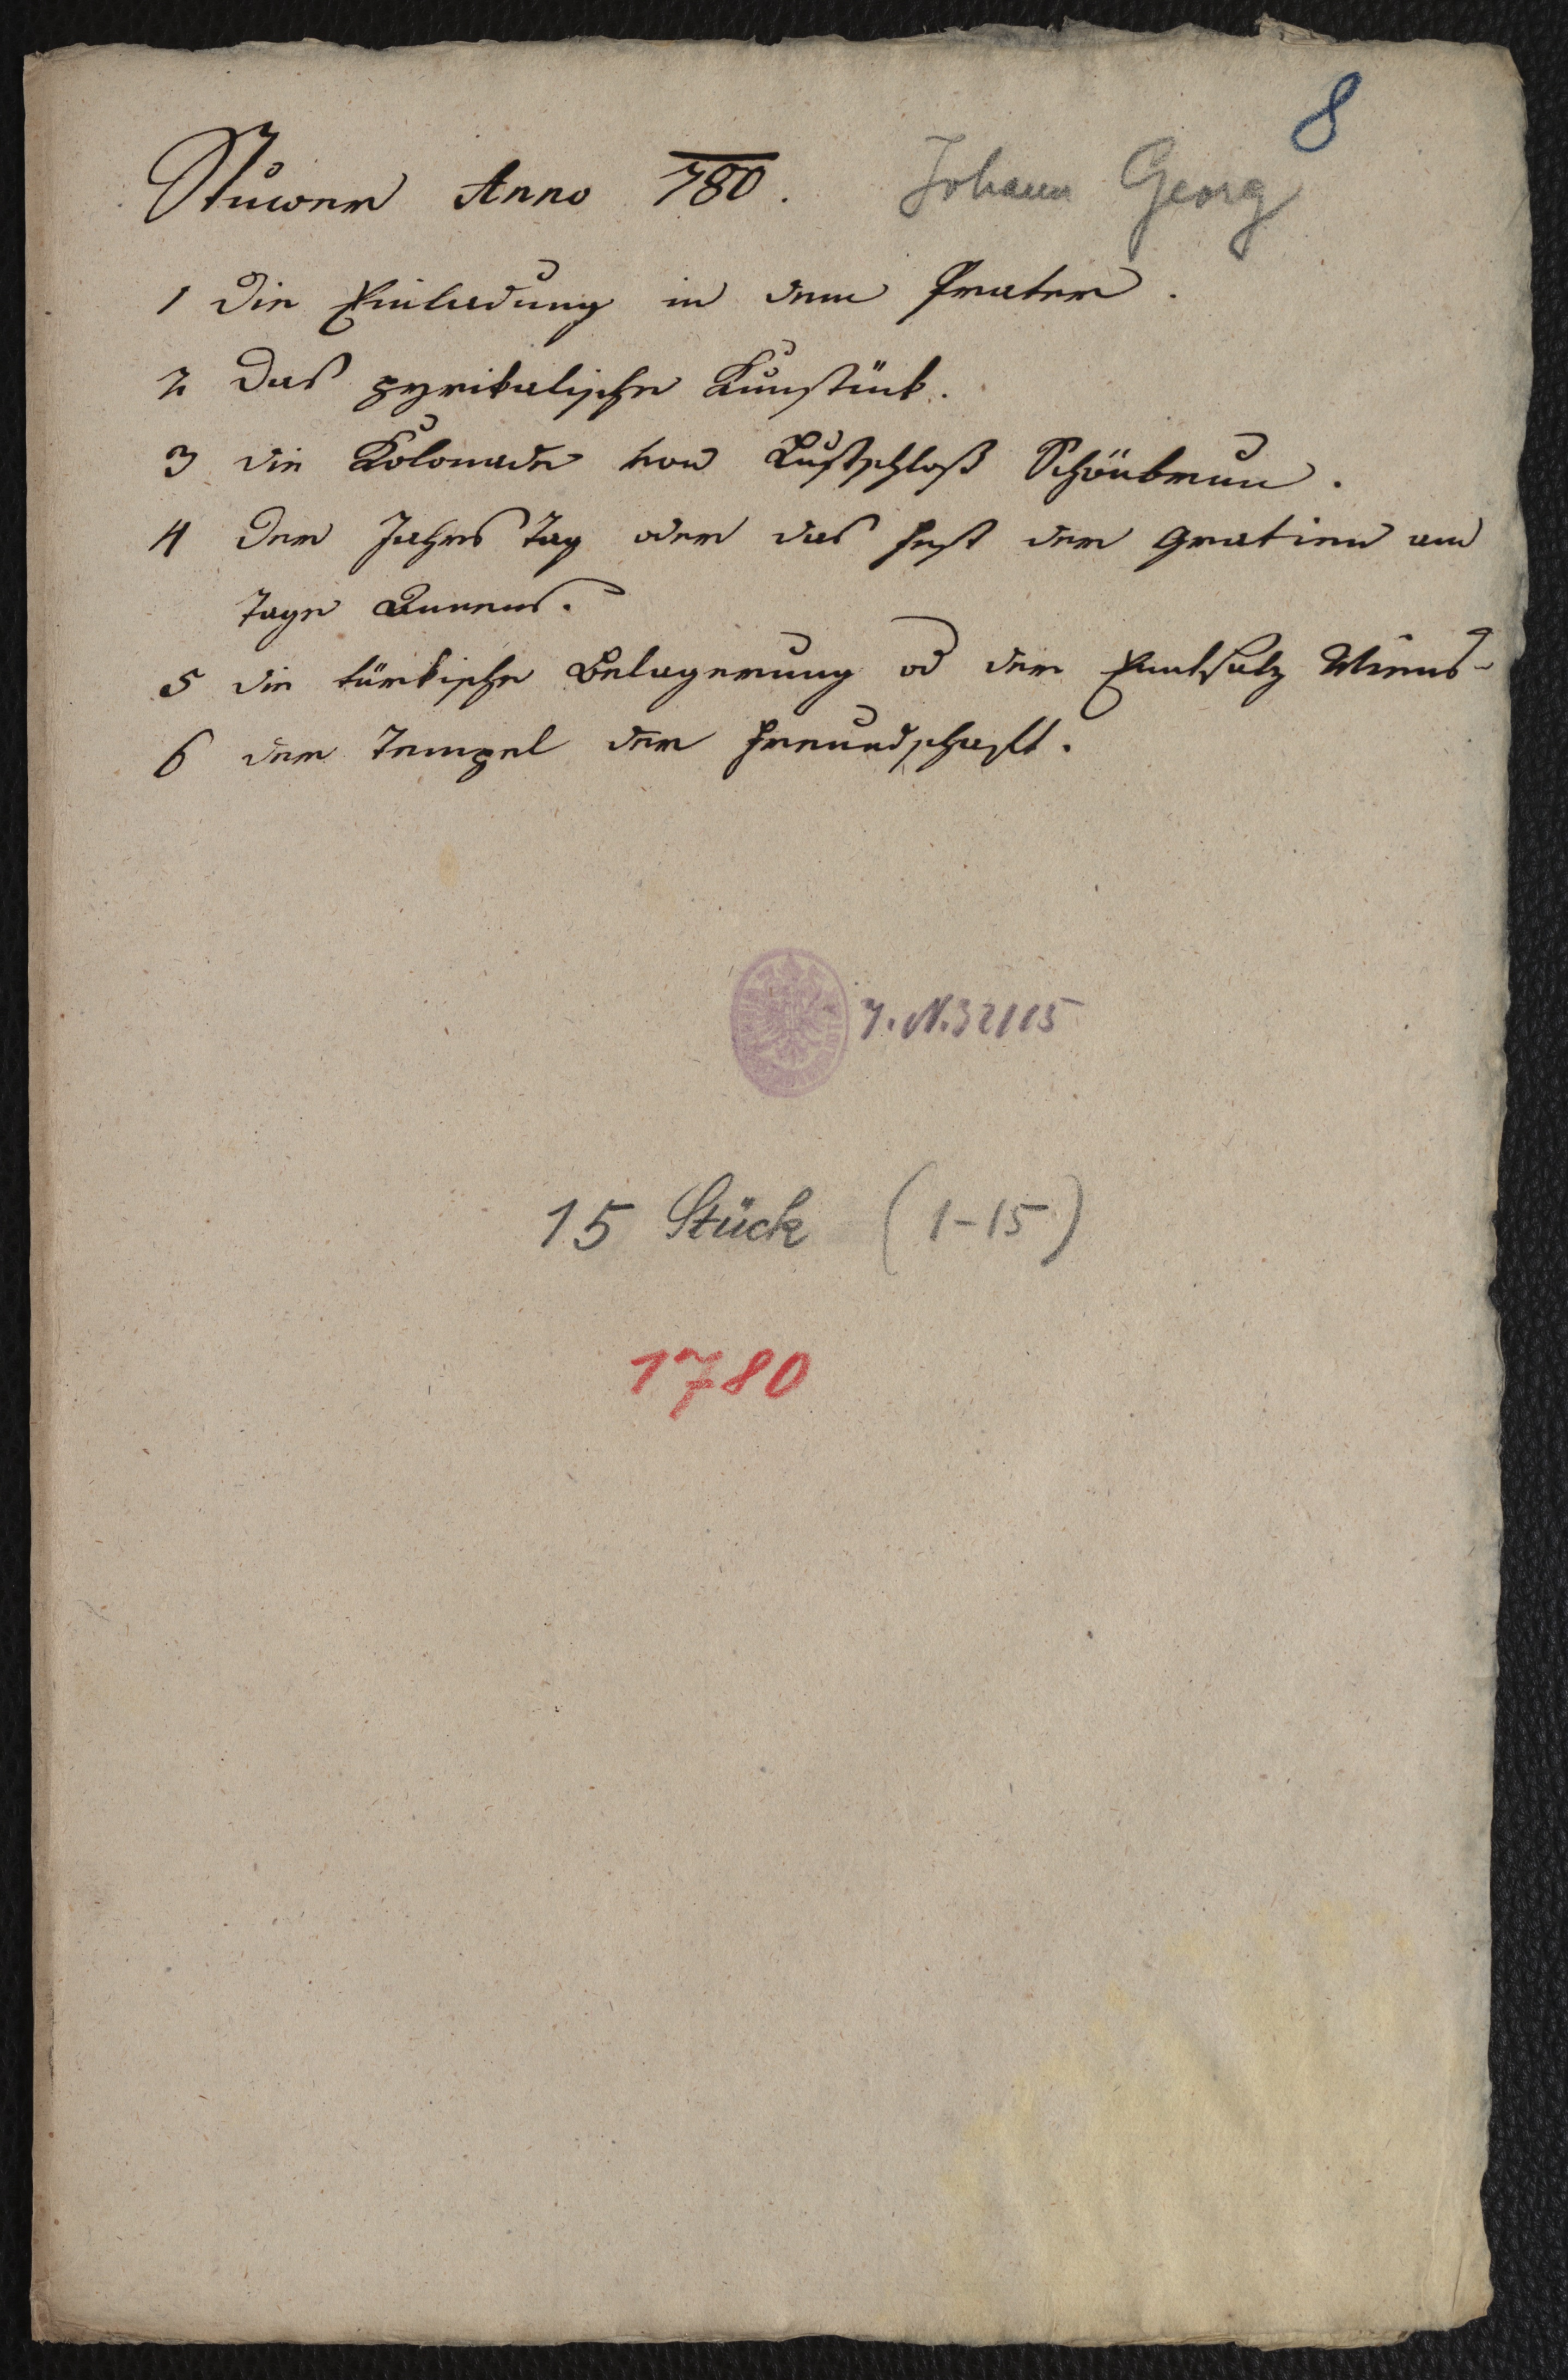 8
Stuwer Anno 780. Johann Georg
1 Die Einladung in dem Prater.
2 Das pyrikalische Kunstück.
3 die Kolonade von Lustschloß Schönbrun.
4 Der Jahrs Tag oder das Fest der Gratien am
Tage Annens.
5 die türkische Belagerung od der Entsatz Wiens
6 der Tempel der Freundschaft.
J. N. 32115
15 Stück (1-15)
1780